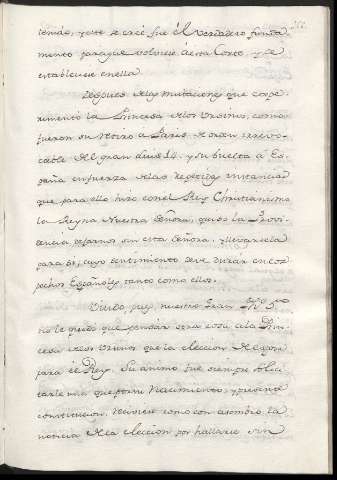 tenido, y este se creé fue él verdadero funda
mento para que volviese á esta Corte, y se
estableciese en ella.
Despues de las mutaciones que expe
rimentó la Princesa de los Ursinos, como
fueron su retiro a Paris de orden irrevo
cable del gran Luis 14. y su buelta á Es
paña en fuerza de las repetidas instancias
que para ello hizo con el Rey Christianissimo
la Reyna Nuestra Señora, quiso la Provi
dencia dejarnos sin esta Señora, y llevarsela
para si, cuyo sentimiento deve durar en los
pechos Españoles tanto como ellos.
Viudo pues nuestro Gran
no le quedó que pensar otra cosa á la Prin
cesa de los Ursinos que la eleccion de esposa
para el Rey. Su animo fue siempre solici
tarle una que por su Nacimiento, y presente
constitucion, reciviese como con asombro la
noticia de la eleccion por hallarse sin